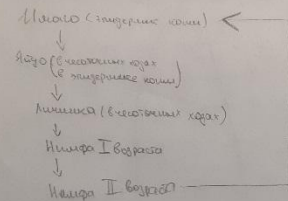 Имаго (эпидермис кожи)
Яйцо (в чесоточных ходах
в эпидермисе кожи)
Личинка (в чесоточных ходах)
Нимфа I возраста
Нимфа II возраста